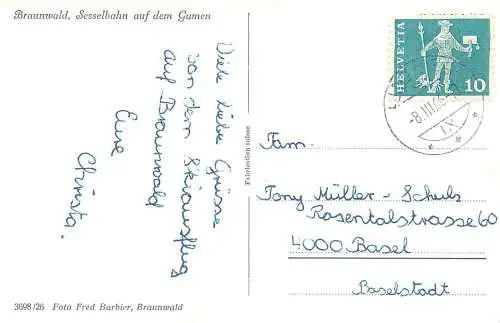 Braunwald, Sesselbahn auf dem Gumen
Viele liebe Grüsse
von dem Skiausflug
auf Braunwald
Eure
Christa.
3698/26 Foto Fred Barbier, Braunwald
Fabrication suisse
HELVETIA
10
-8.III.
IX
Fam.
Tony Müller - Schulz
Rosentalstrasse 60
4000 Basel
Baselstadt